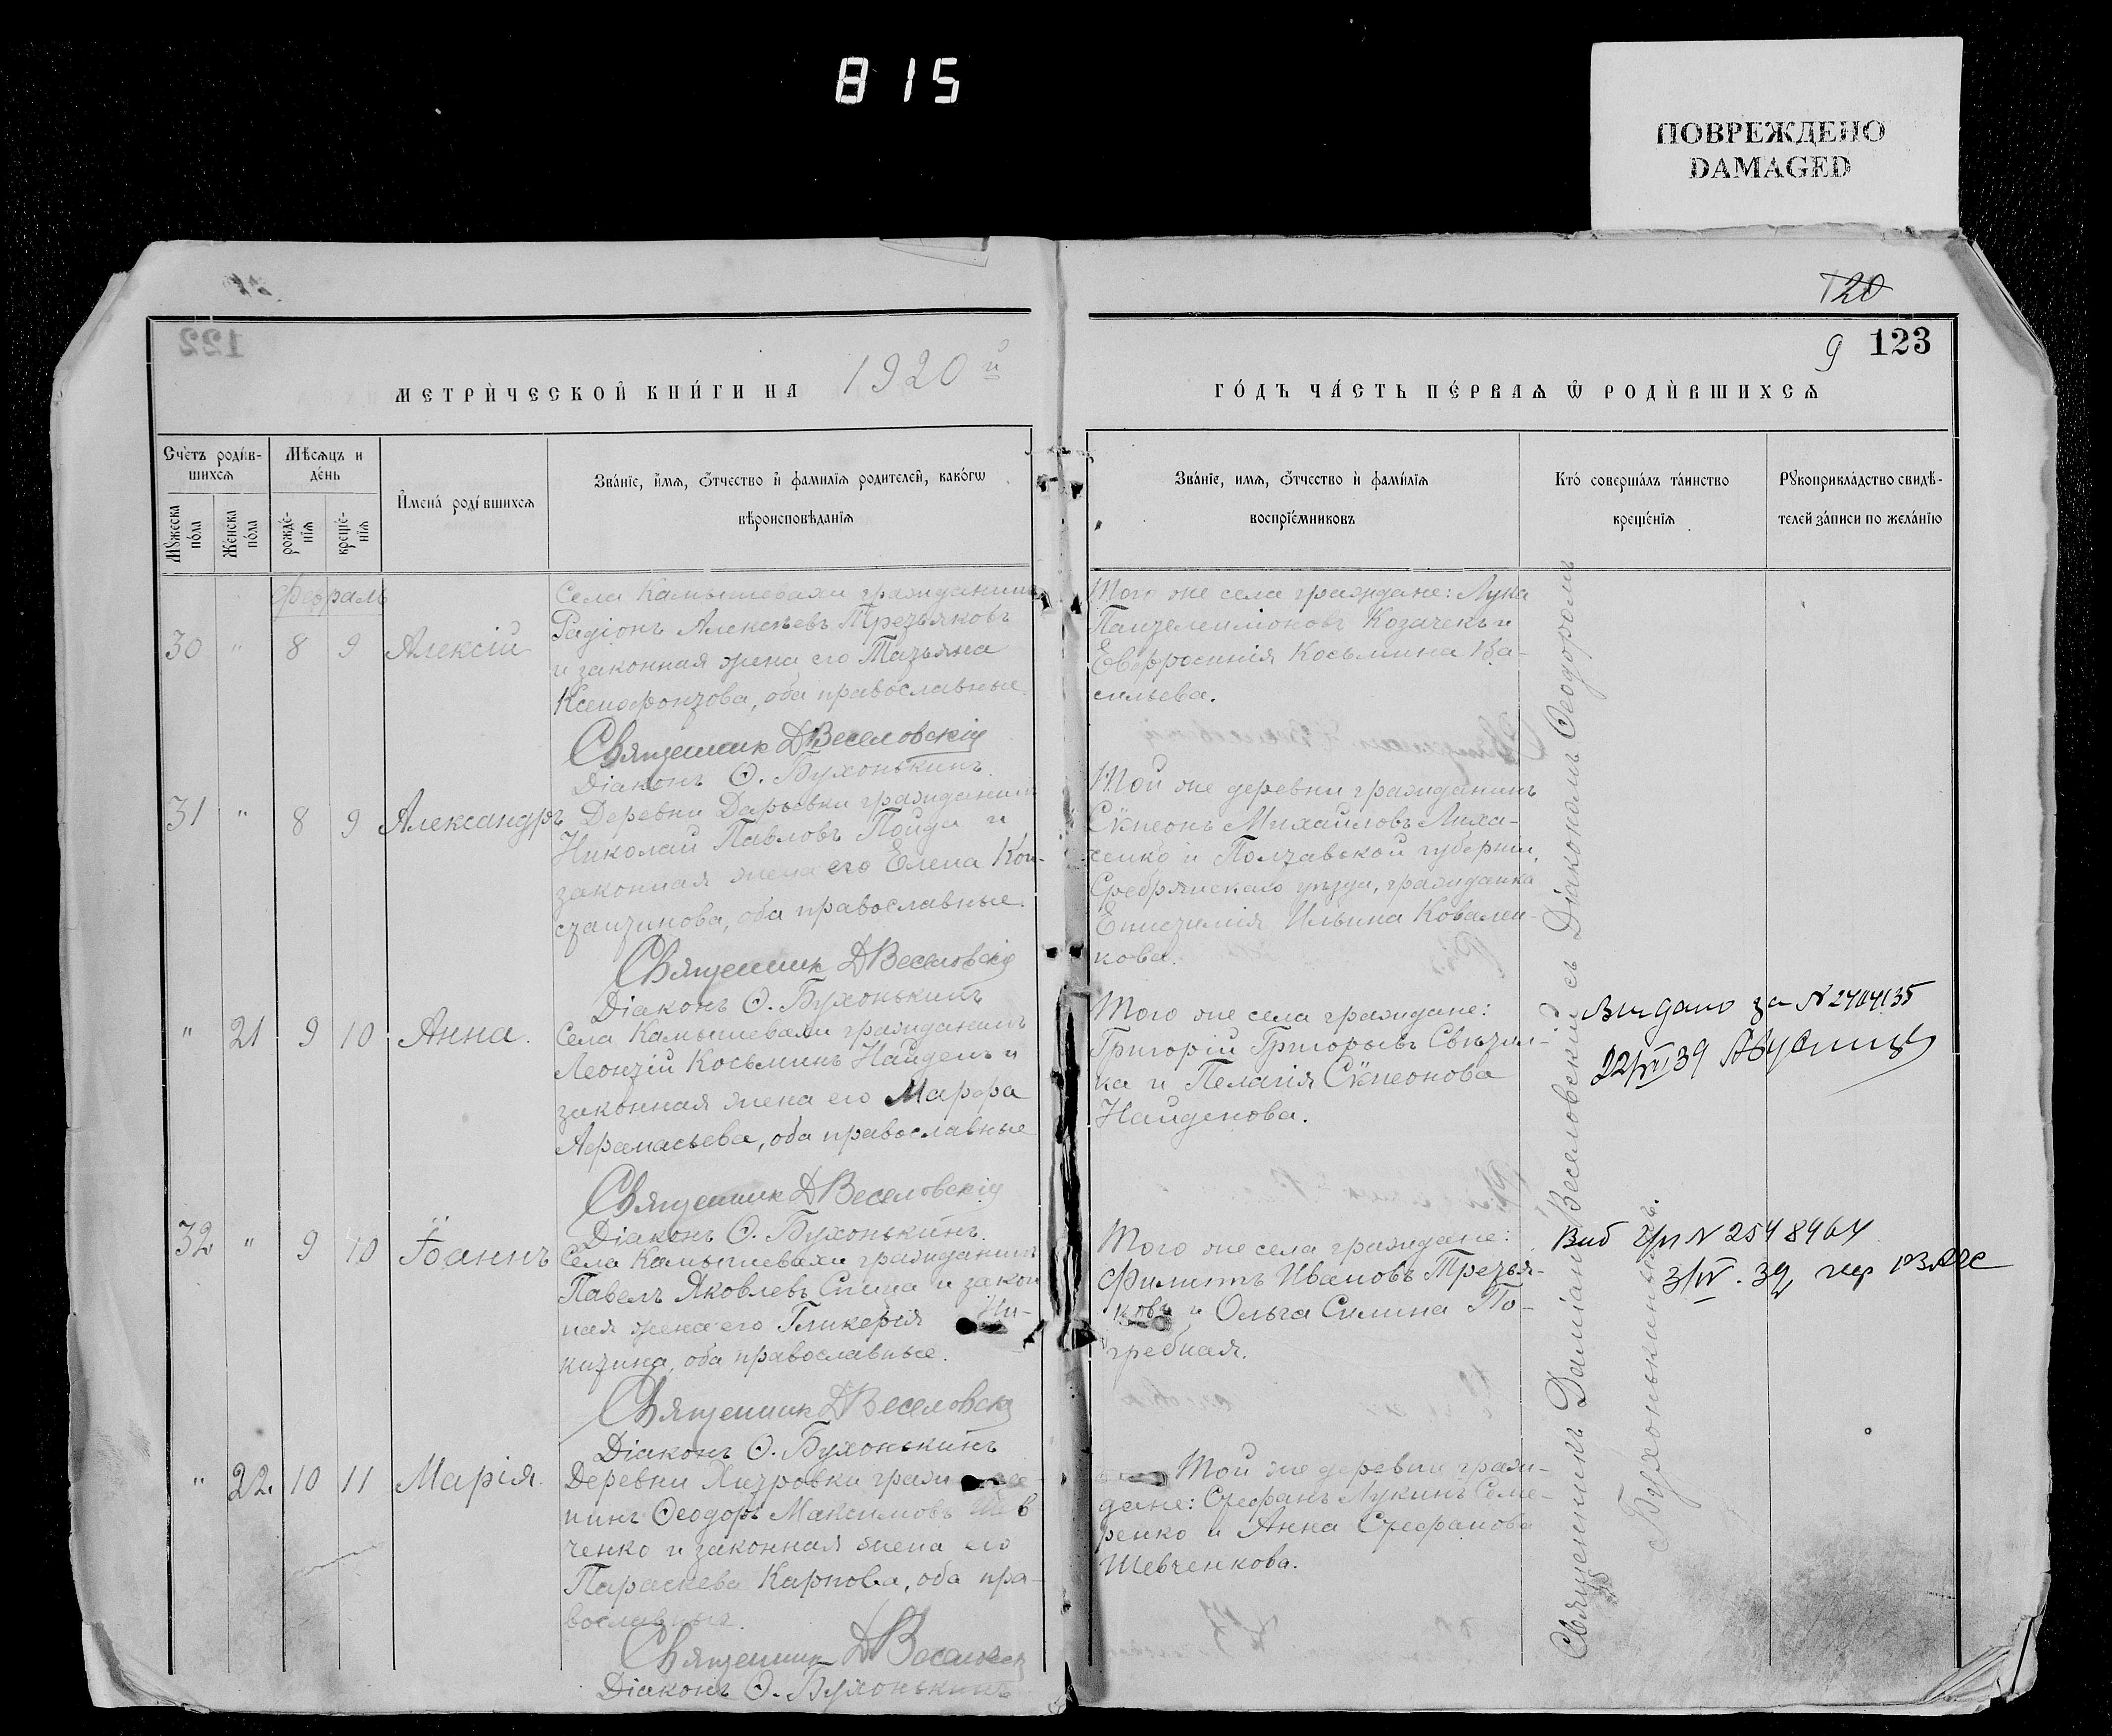 815
ПОВРЕЖДЕНО
DAMAGED
120
9 123
122
МЕТРИ́ЧЕСКОЙ КНИ́ГИ НА 1920 й
ГО́ДЪ ЧА́СТЬ ПЕ́РВАѦ Ѿ РОДИ́ВШИХСѦ
Счетъ роди́в-
шихсѧ
Мѣсѧцъ и
де́нь
Мꙋжеска
по́ла
Же́нска
по́ла
рожде́-
нїѧ
креще́-
нїѧ
И҆мена́ роди́вшихсѧ
Зва́нїе, и҆́мѧ, ѻ҆́тчество и҆ фами́лїѧ родителей, како́гѡ
вѣроисповѣданїѧ
Зва́нїе, имѧ, ѻ҆́тчество и҆ фами́лїѧ
воспрїе́мниковъ
Кто́ соверша́лъ та́инство
креще́нїѧ
Рꙋкоприкла́дство свидѣ́-
телей за́писи по жела́нїю
Февраль
30 " 8 9 Алексій
Села Камышевахи гражданинъ
Радіонъ Алексѣевъ Третьяковъ
и законная жена его Татьяна
Ксенофонтова, оба православные.
Священникъ Д Веселовскій
Діаконъ Ѳ. Бухонькинъ.
Того же села граждане: Лука
Пантелеимоновъ Козачекъ и
Евфросинія Косьмина Ва-
сильева.
31 " 8 9 Александръ
Деревни Дарьевки гражданинъ
Николай Павловъ Пойда и
законная жена его Елена Кон-
стантинова, оба православные.
Священникъ Д Веселовскій
Діаконъ Ѳ. Бухонькинъ
Той же деревни гражданинъ
Сѵмеонъ Михайловъ Лиха-
ченко и Полтавской губерніи,
уѣзда, гражданка
Епистимія Ильина Ковален-
кова.
" 21 9 10 Анна.
Села Камышевахи гражданинъ
Леонтій Косьминъ Найденъ и
законная жена его Марфа
Афанасьева, оба православные
Священникъ Д Веселовскій
Діаконъ Ѳ. Бухонькинъ.
Того же села граждане:
Григорій Григорьевъ Свѣтли-
ка и Пелагія Сѵмеонова
Найденова.
Выдано за N
22/VI 39
32 " 9 10 Іоаннъ
Села Камышевахи гражданинъ
Павелъ Яковлевъ Спица и закон
ная жена его Гликерія Ни-
китина, оба православные.
Священникъ Д Веселовскій
Діаконъ Ѳ. Бухонькинъ
Того же села граждане:
Филиппъ Ивановъ Третья-
ковъ и Ольга Силина По-
гребная.
N 2548964
3/IV. 39
" 22. 10 11 Марія.
Деревни Хитровки граж
нинъ Ѳеодоръ Максимовъ Шев
ченко и законная жена его
Параскева Карпова, оба пра-
вославные.
Священникъ Д Веселовскій
Діаконъ Ѳ. Бухонькинъ
Той же деревни граж-
дане: Стефанъ Лукинъ Семе-
ренко и Анна Стефанова
Шевченкова.
Священникъ Даміанъ Веселовскій съ Діакономъ Ѳеодоромъ
Бухонькинымъ.